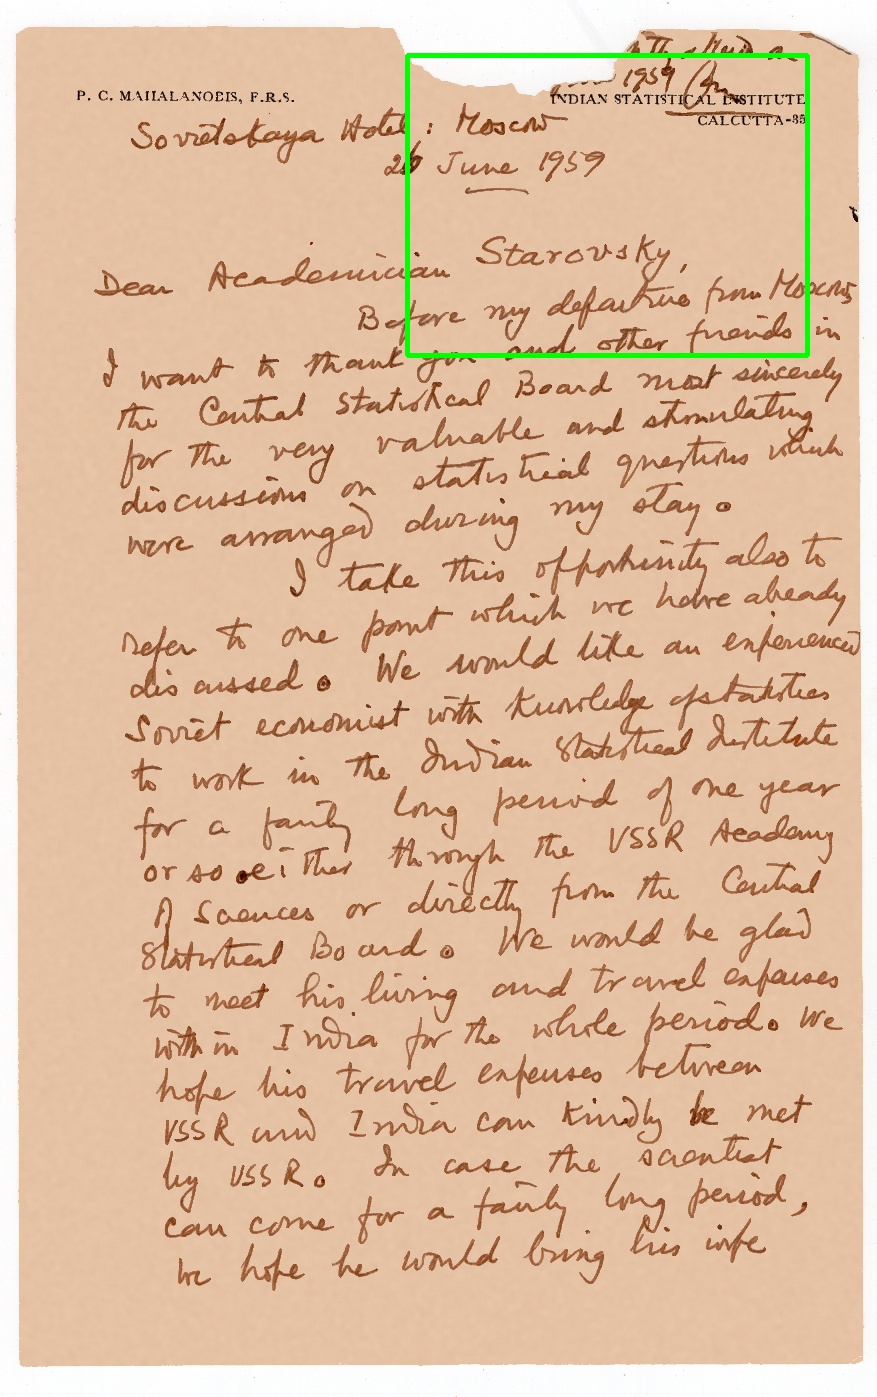 1959
P. C. MAHALANOBIS, F.R.S.
INDIAN STATISTICAL INSTITUTE
CALCUTTA-35
Sovietskaya Hotel : Moscow
26 June 1959
Dear Academician Starovsky,
Before my departure from Moscow
I want to thank you and other friends in
the Central Statistical Board most sincerely
for the very valuable and stimulating
discussions on statistical questions which
were arranged during my stay.
I take this opportunity also to
refer to one point which we have already
discussed. We would like an experienced
Soviet economist with knowledge of statistics
to work in the Indian Statistical Institute
for a fairly long period of one year
or so either through the USSR Academy
of Sciences or directly from the Central
Statistical Board. We would be glad
to meet his living and travel expenses
within India for the whole period. We
hope his travel expenses between
USSR and India can kindly be met
by USSR. In case the scientist
can come for a fairly long period,
we hope he would bring his wife